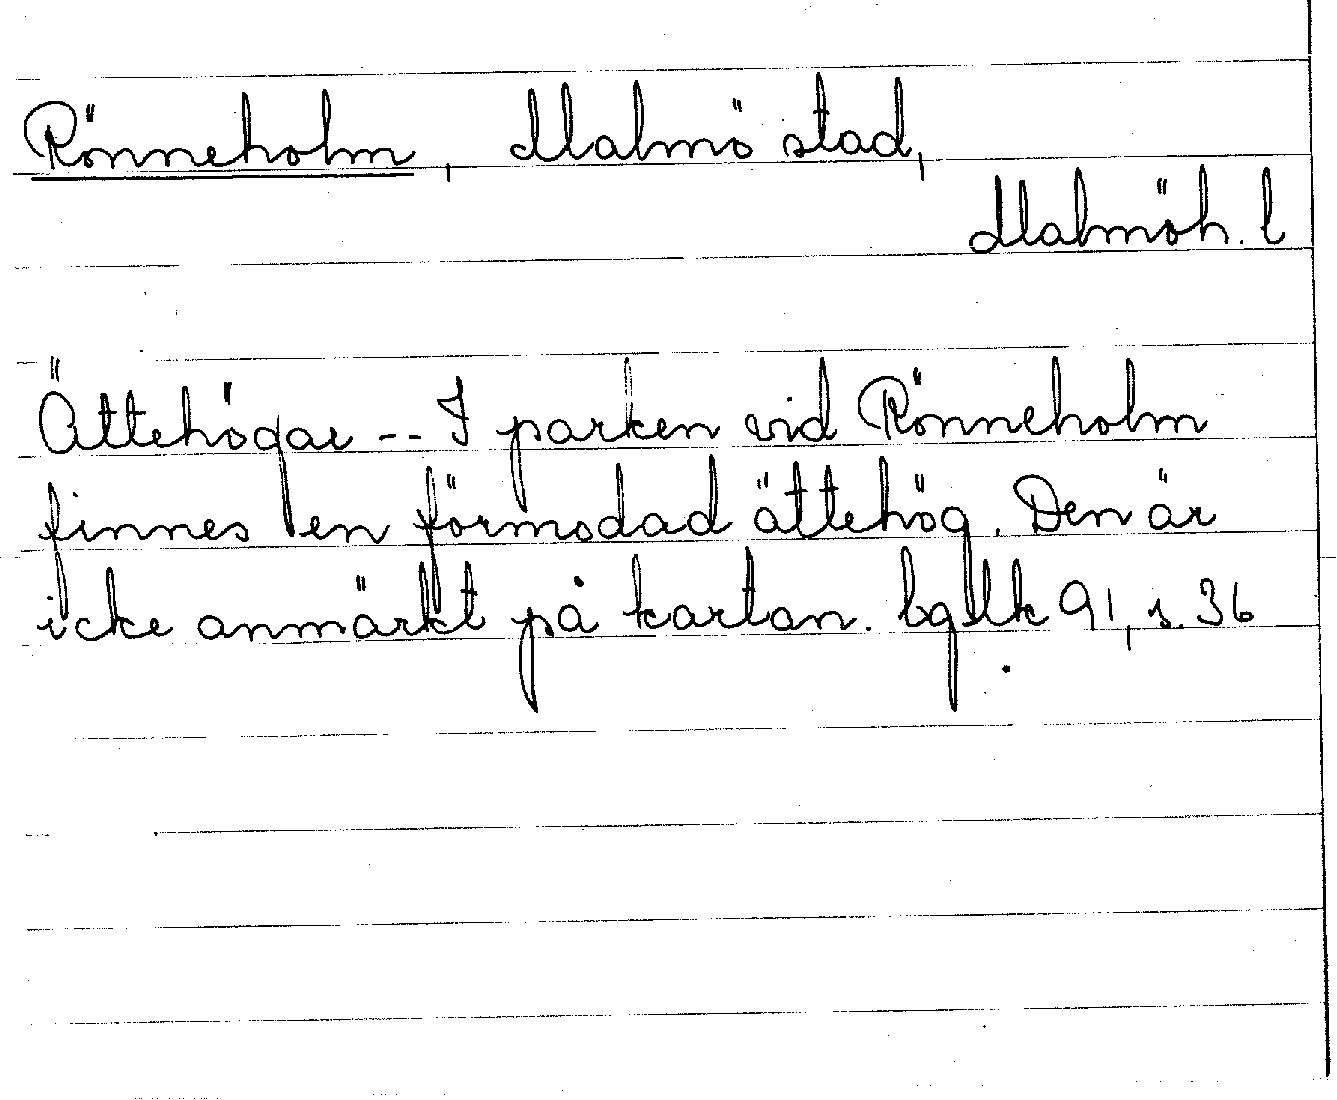 Rönneholm, Malmö stad,
Malmöh. l
Ättehögar -- I parken vid Rönneholm
finnes en förmodad ättehög. Den är
icke anmärkt på kartan. bglk 91, s. 36